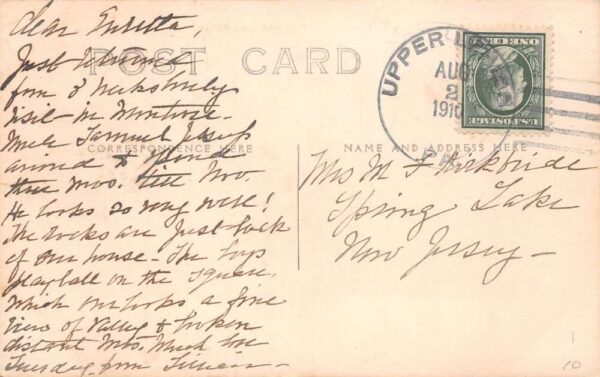 POST CARD
CORRESPONDENCE HERE
NAME AND ADDRESS HERE
Dear
Just returned
from 3 weeks lovely
visit in Montrose.
Samuel
arrived to spend
three mos. till Nov
He looks so very well!
The rocks are just back
of our house - The boys
play ball on the square.
Which overlooks a fine
view of Valley & broken
distant Mts. Much love
Tuesday from Lillian -
Mrs M F Kirkbride
Spring Lake
New Jersey -
UPPER
AUG
2
191
PA
ONE CENT
U.S. POSTAGE
10